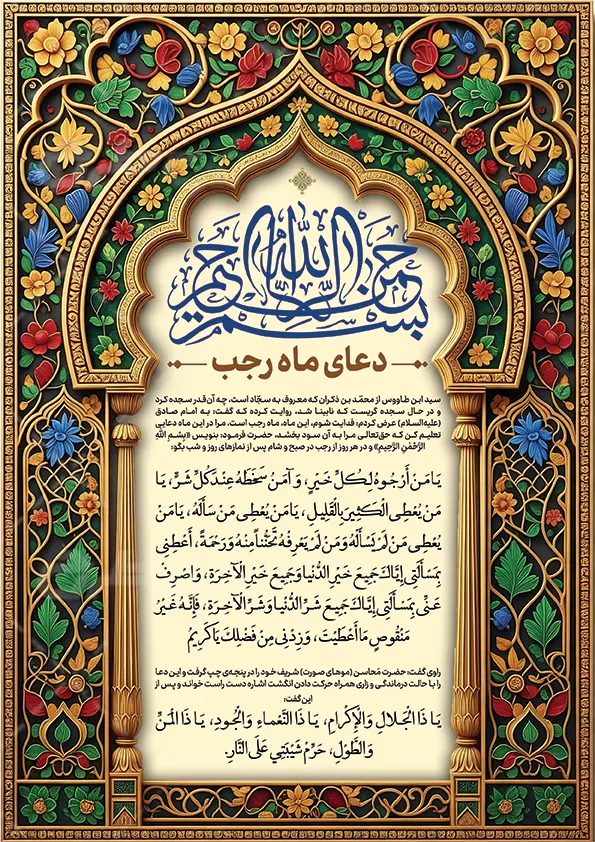 بسم الله الرحمن الرحیم
دعای ماه رجب
سید ابن طاووس از محمّد بن ذکران که معروف به سجّاد است، چه آن‌قدر سجده کرد
و در حال سجده گریست که نابینا شد، روایت کرده که گفت: به امام صادق
(علیه‌السلام) عرض کردم: فدایت شوم، این ماه، ماه رجب است. مرا در این ماه دعایی
تعلیم کن که حق‌تعالی مرا به آن سود بخشد، حضرت فرمود: بنویس «بِسْمِ اللَّهِ
الرَّحْمَٰنِ الرَّحِيمِ» و در هر روز از رجب در صبح و شام پس از نمازهای روز و شب بگو:
يَا مَنْ أَرْجُوهُ لِكُلِّ خَيْرٍ، وَ آمَنُ سَخَطَهُ عِنْدَ كُلِّ شَرٍّ، يَا
مَنْ يُعْطِى الْكَثِيرَ بِالْقَلِيلِ، يَا مَنْ يُعْطِى مَنْ سَأَلَهُ، يَا مَنْ
يُعْطِى مَنْ لَمْ يَسْأَلْهُ وَمَنْ لَمْ يَعْرِفْهُ تَحَنُّناً مِنْهُ وَرَحْمَةً، أَعْطِنِى
بِمَسْأَلَتِى إِيَّاكَ جَمِيعَ خَيْرِ الدُّنْيَا وَجَمِيعَ خَيْرِ الْآخِرَةِ، وَاصْرِفْ
عَنِّى بِمَسْأَلَتِى إِيَّاكَ جَمِيعَ شَرِّ الدُّنْيَا وَشَرِّ الْآخِرَةِ، فَإِنَّهُ غَيْرُ
مَنْقُوصٍ مَا أَعْطَيْتَ، وَ زِدْنِى مِنْ فَضْلِكَ يَا كَرِيمُ
راوی گفت: حضرت مَحاسن (موهای صورت) شریف خود را در پنجه‌ی چپ گرفت و این دعا
را با حالت درماندگی و زاری همراه حرکت دادن انگشت اشاره دست راست خواند و پس از
این گفت:
يَا ذَا الْجَلالِ وَالْإِكْرامِ، يَا ذَا النَّعْماءِ وَالْجُودِ، يَا ذَا الْمَنِّ
وَالطَّوْلِ، حَرِّمْ شَيْبَتِي عَلَى النَّارِ.